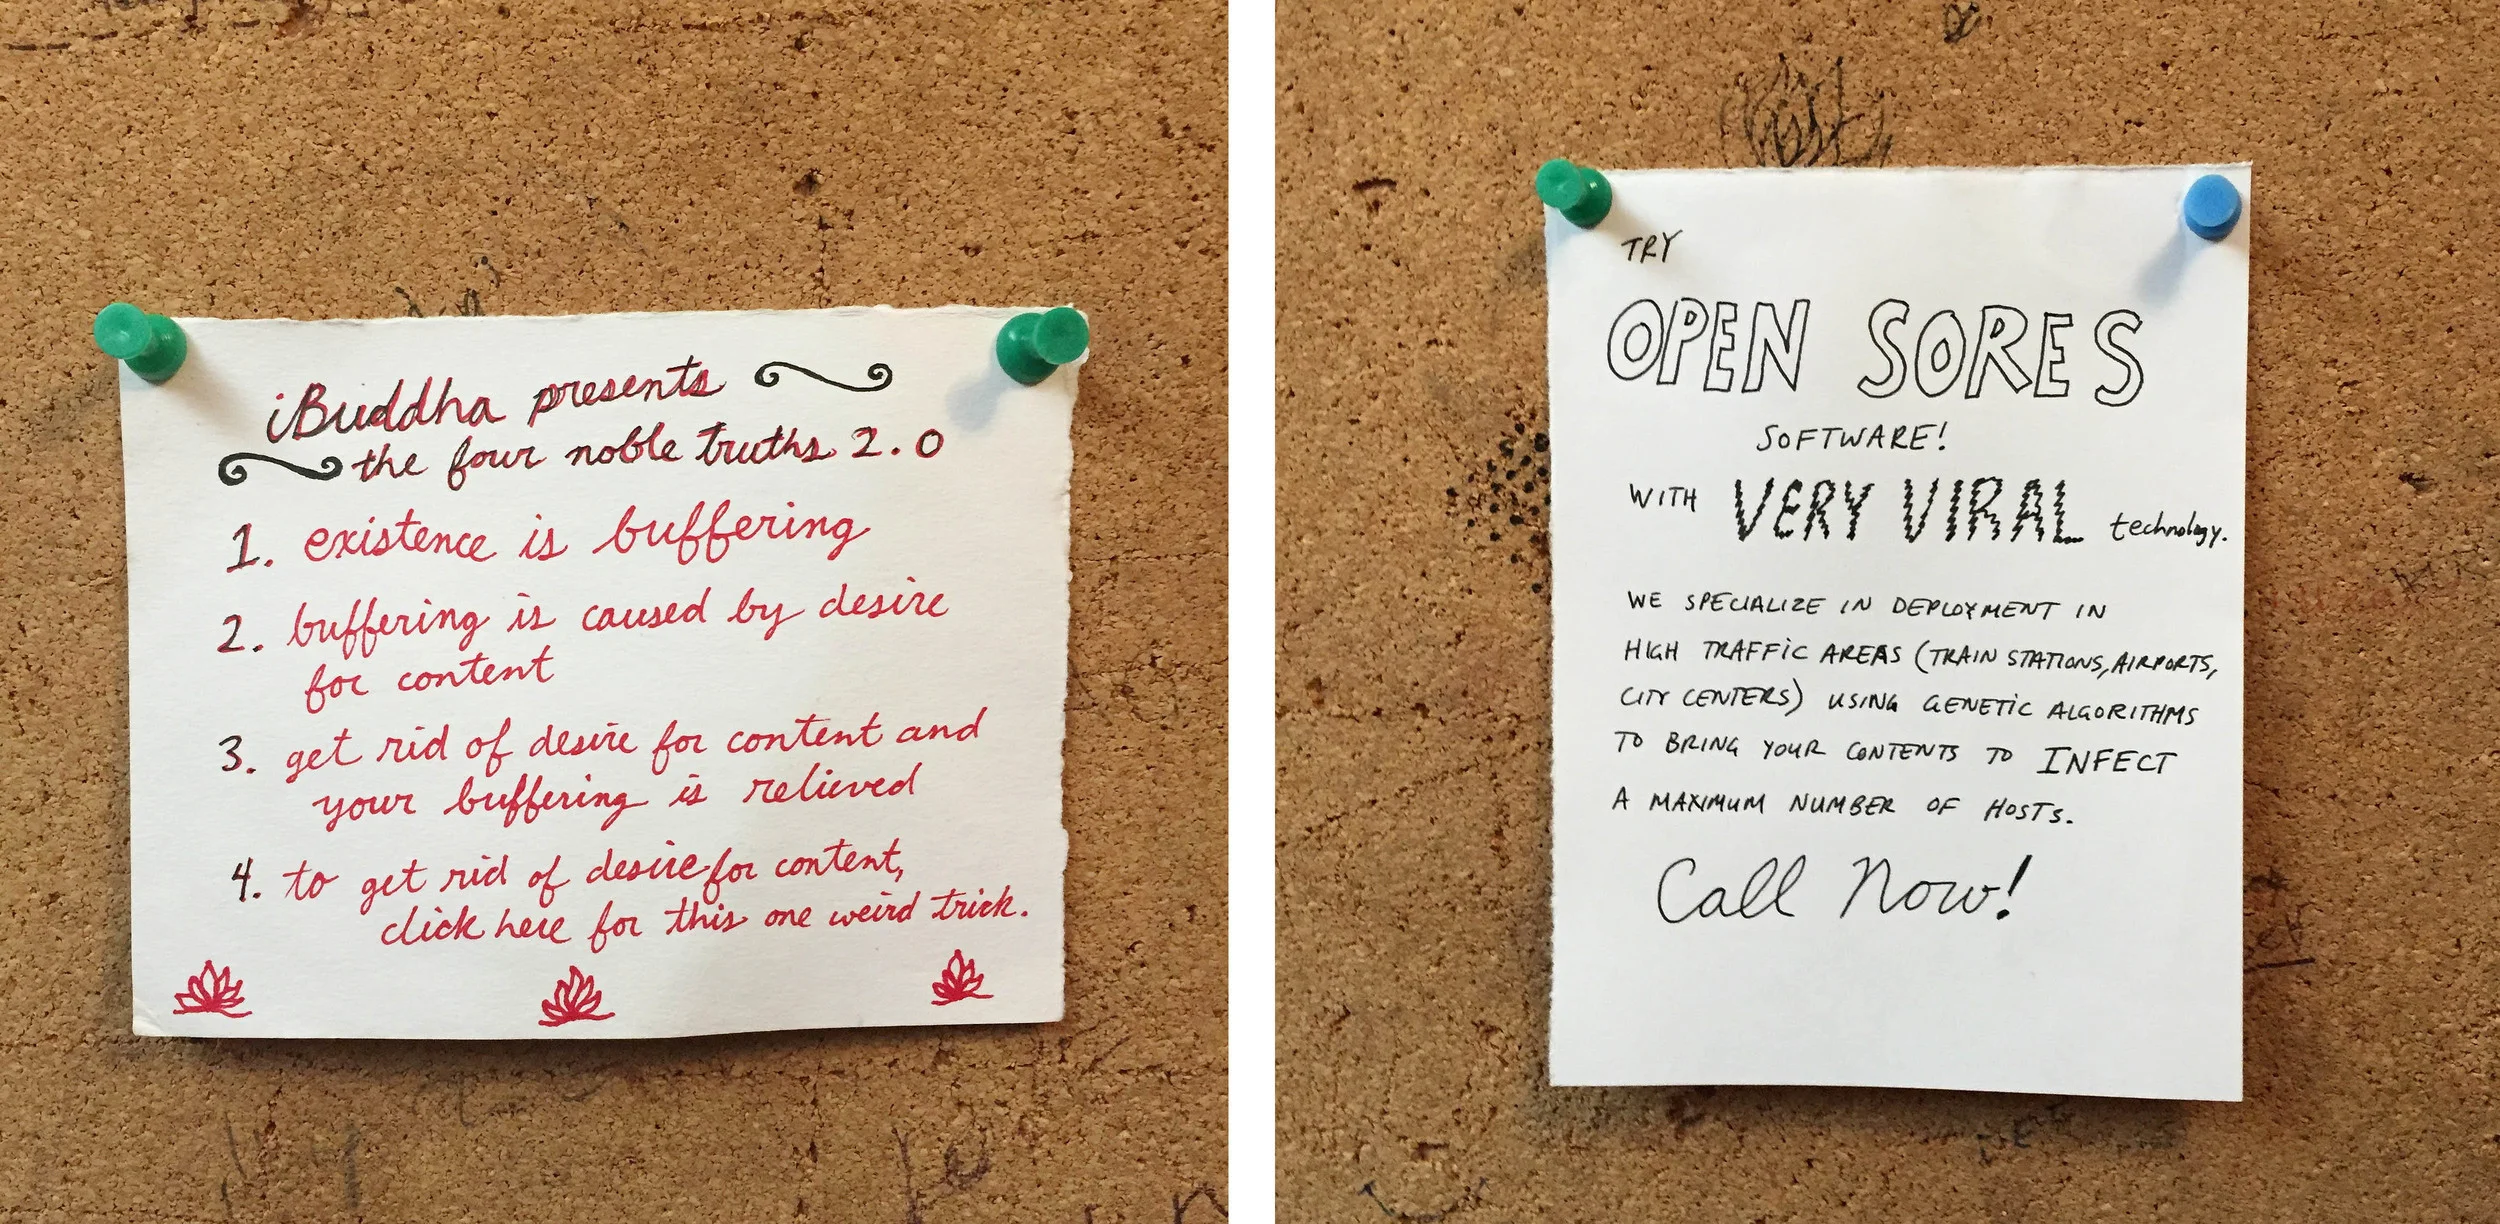 iBuddha presents
the four noble truths 2.0
1. existence is buffering
2. buffering is caused by desire
for content
3. get rid of desire for content and
your buffering is relieved
4. to get rid of desire for content,
click here for this one weird trick.
TRY
OPEN SORES
SOFTWARE!
WITH VERY VIRAL technology.
WE SPECIALIZE IN DEPLOYMENT IN
HIGH TRAFFIC AREAS (TRAIN STATIONS, AIRPORTS,
CITY CENTERS) USING GENETIC ALGORITHMS
TO BRING YOUR CONTENTS TO INFECT
A MAXIMUM NUMBER OF HOSTS.
Call Now!